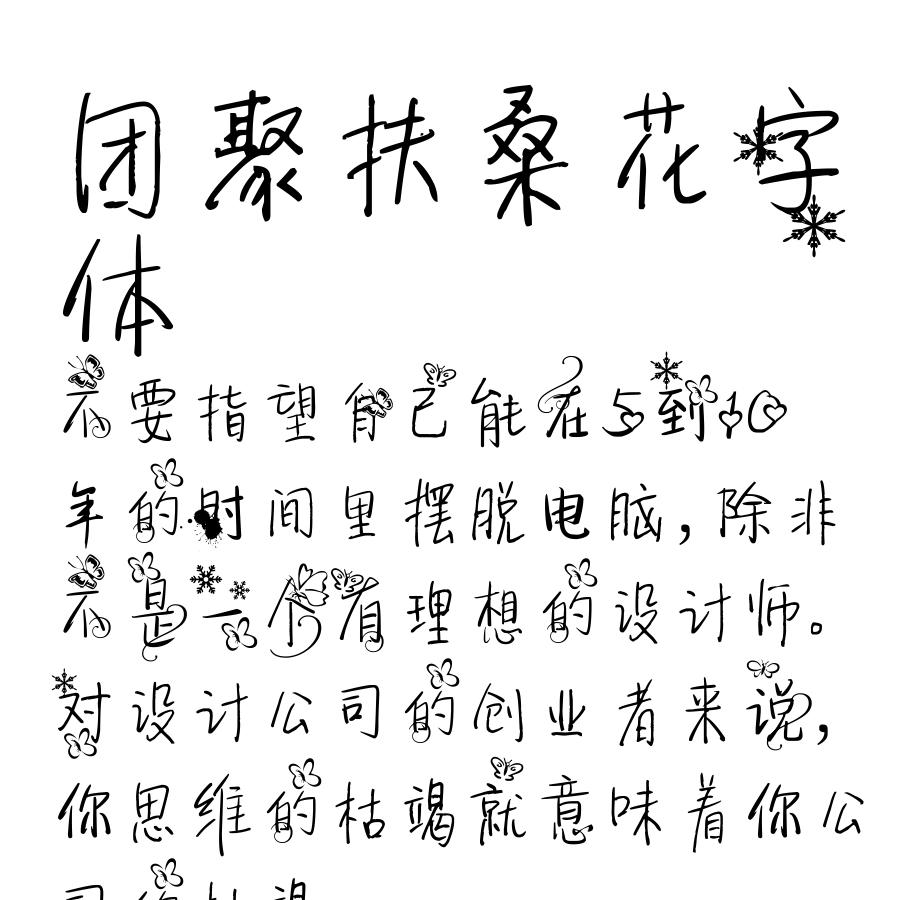 团聚扶桑花字
体
不要指望自己能在5到10
年的时间里摆脱电脑，除非
不是一个有理想的设计师。
对设计公司的创业者来说，
你思维的枯竭就意味着你公
司的枯竭